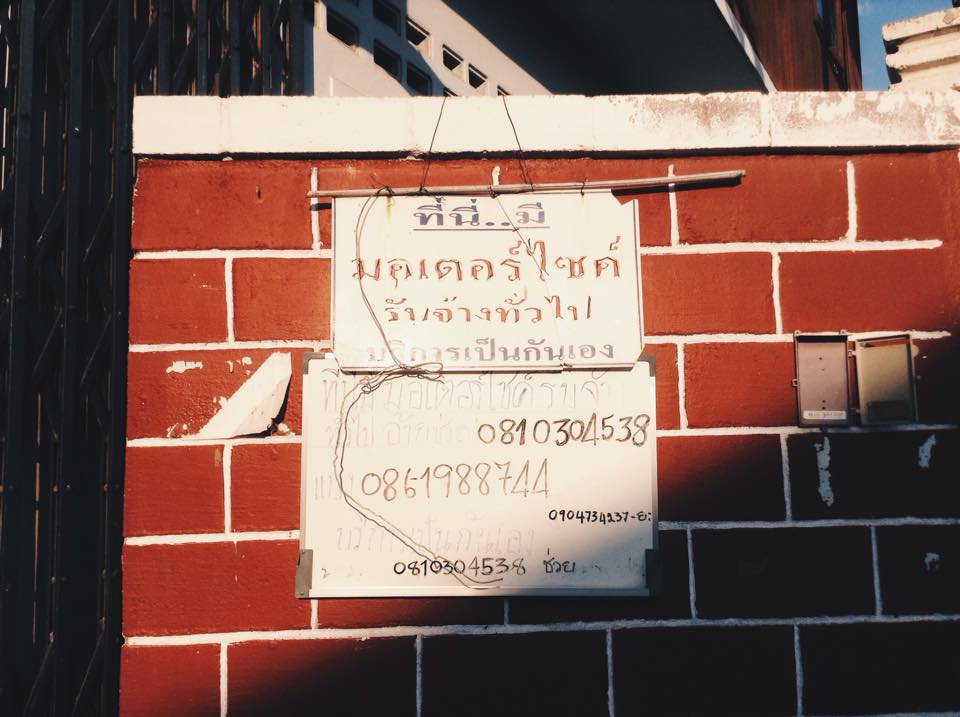 ที่นี่..มี
มอเตอร์ไซค์
รับจ้างทั่วไป
บริการเป็นกันเอง
ที่นี่มี มอเตอร์ไซค์รับจ้าง
0810304538
0861988744
0904734237-ย:
บริการเป็นกันเอง
0810304538 ช่วย